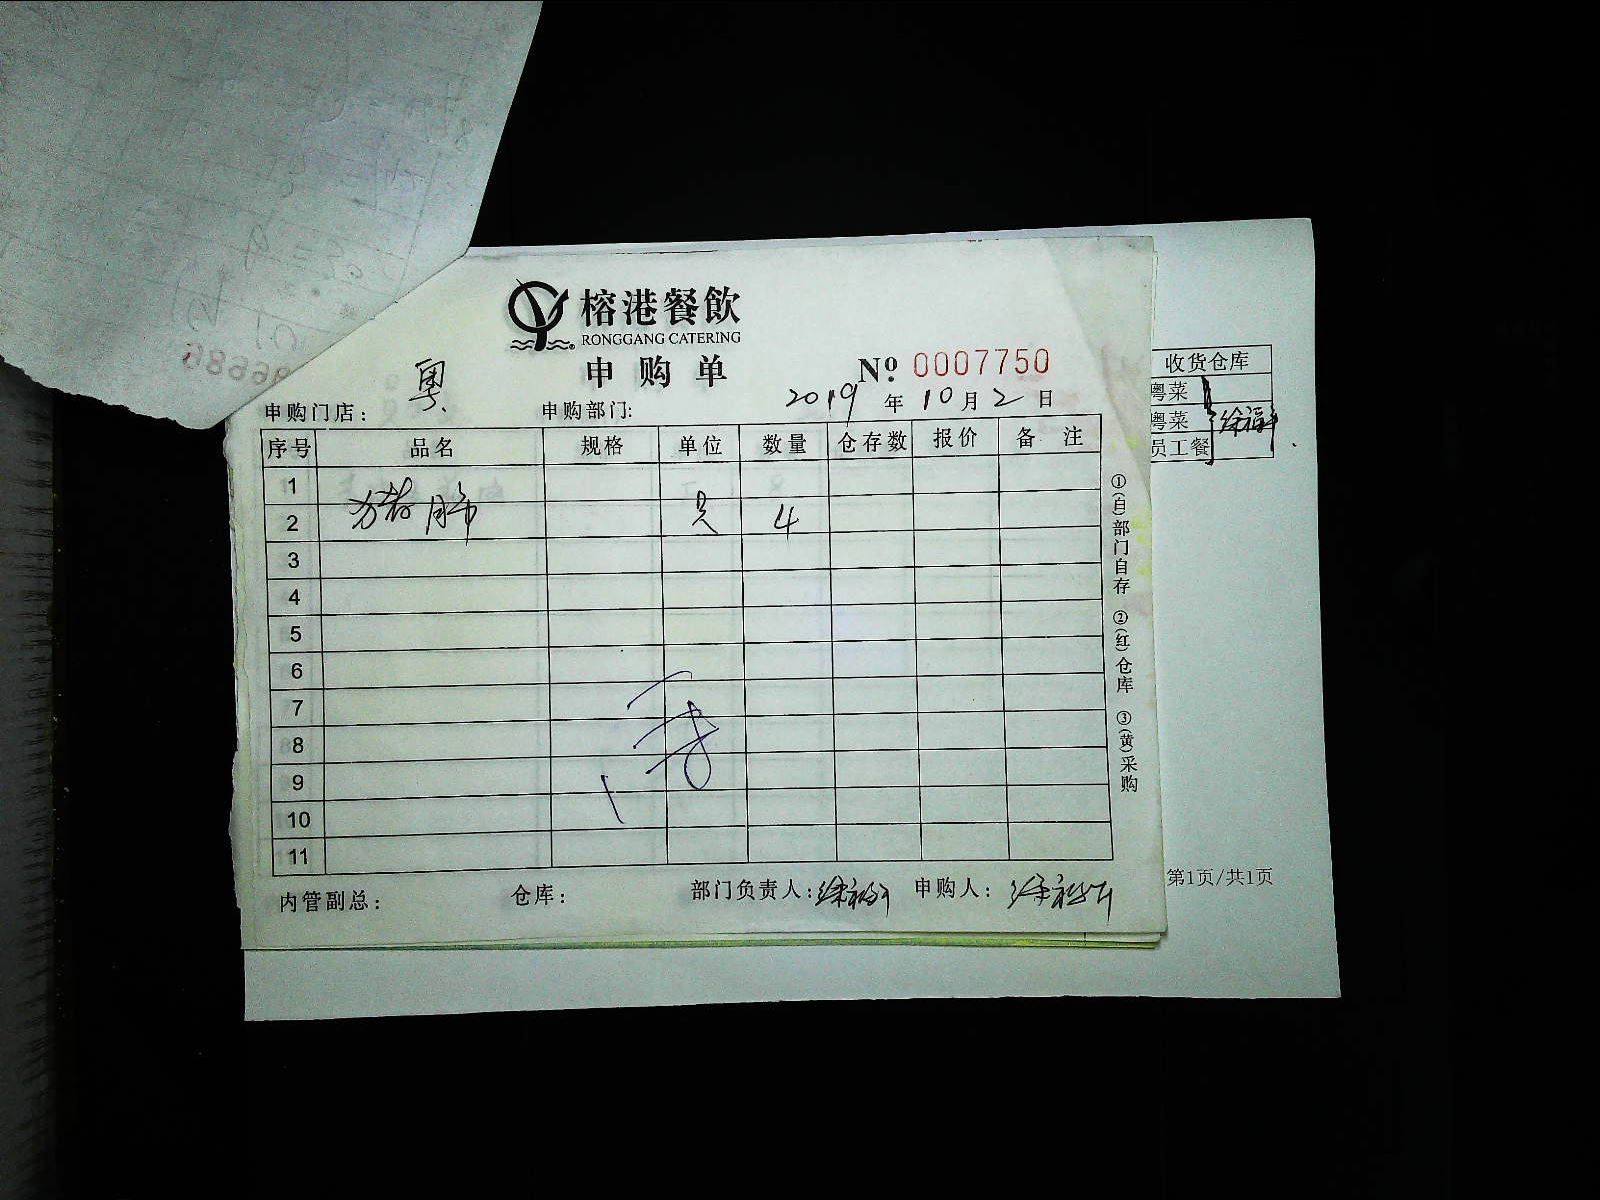 榕港餐飲
RONGGANG CATERING
申购单 Nº 0007750
申购门店： 粤 申购部门: 2019 年 10 月 2 日
序号 品名 规格 单位 数量 仓存数 报价 备 注
1
2 猪肺 只 4
3
4
5
6
7
8
9
10
11
内管副总： 仓库： 部门负责人: 申购人：
①(白)部门自存 ②(红)仓库 ③(黄)采购
收货仓库
粤菜
粤菜
员工餐
第1页/共1页